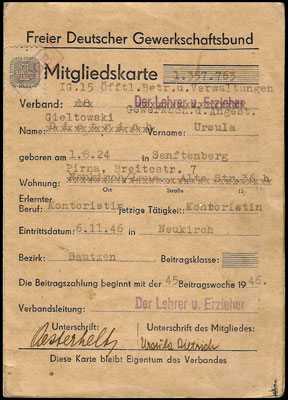 Freier Deutscher Gewerkschaftsbund
Mitgliedskarte 1.357.763
IG.15 Öfftl.Betr.u.Verwaltungen
Verband: 18 Gewerksch.d.Angest.
Der Lehrer u. Erzieher
Gieltowski
Name: Vorname: Ursula
geboren am 1.8.24 in Senftenberg
Pirna, Breitestr. 7
Wohnung: Alte Str.36 b
Ort Straße
Erlernter
Beruf: Kontoristin jetzige Tätigkeit: Kontoristin
Eintrittsdatum: 6.11.46 in Neukirch
Bezirk: Bautzen Beitragsklasse:
Die Beitragszahlung beginnt mit der 45 Beitragswoche 1946.
Verbandsleitung: Der Lehrer u. Erzieher
Unterschrift: Unterschrift des Mitgliedes:
Oesterhelt Ursula Dietrich
Diese Karte bleibt Eigentum des Verbandes